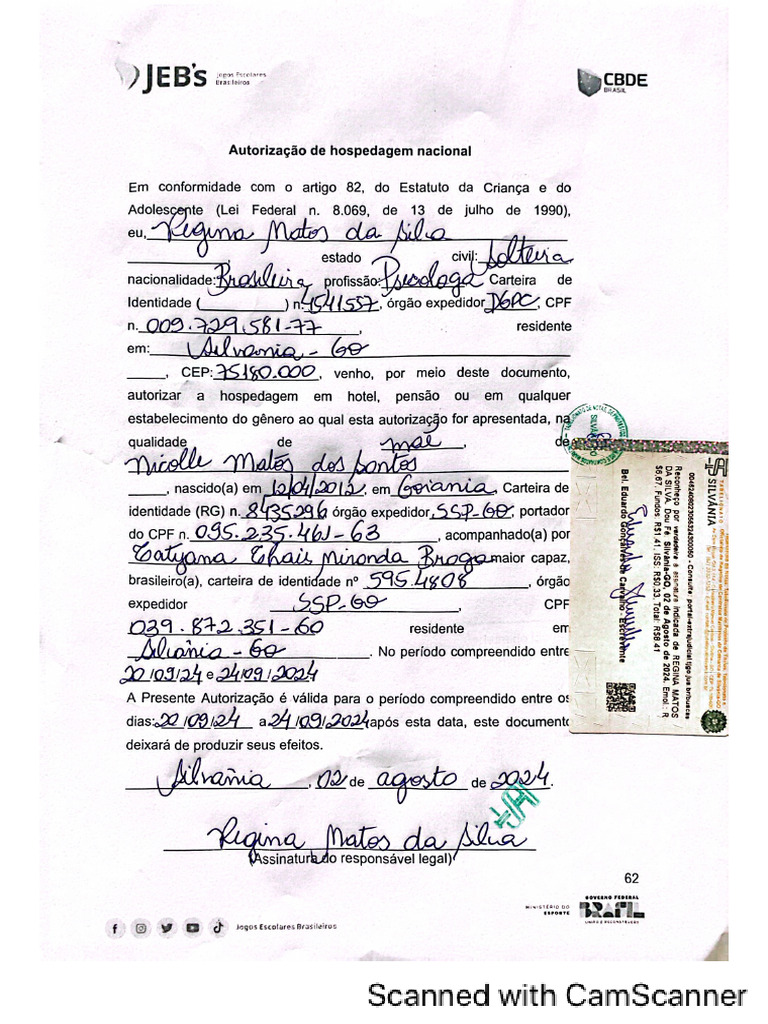 JEB's Jogos Escolares
Brasileiros
CBDE
BRASIL
Autorização de hospedagem nacional
Em conformidade com o artigo 82, do Estatuto da Criança e do
Adolescente (Lei Federal n. 8.069, de 13 de julho de 1990),
eu, Regina Matos da Silva
estado civil: Solteira
nacionalidade: Brasileira profissão: Psicologa Carteira de
Identidade ( ) n. 4541557, órgão expedidor DGPC, CPF
n. 009.729.581-77, residente
em: Silvania - GO
, CEP: 75180.000, venho, por meio deste documento,
autorizar a hospedagem em hotel, pensão ou em qualquer
estabelecimento do gênero ao qual esta autorização for apresentada, na
qualidade de mãe, de
Nicolle Matos dos Santos
, nascido(a) em 12/04/2012, em Goiania, Carteira de
identidade (RG) n. 8435296 órgão expedidor SSP-GO, portador
do CPF n. 095.235.461-63, acompanhado(a) por
Tatyana Thais Miranda Braga maior capaz,
brasileiro(a), carteira de identidade nº 595.4808, órgão
expedidor SSP-GO, CPF
039.872.351-60 residente em
Silvânia - GO. No período compreendido entre
20/09/24 e 24/09/2024
A Presente Autorização é válida para o período compreendido entre os
dias: 20/09/24 a 24/09/2024 após esta data, este documento
deixará de produzir seus efeitos.
Silvânia, 02 de agosto de 2024.
Regina Matos da Silva
(Assinatura do responsável legal)
62
SILVÂNIA
Reconheço por verdadeira a assinatura indicada de REGINA MATOS
DA SILVA. Dou Fé. Silvânia-GO, 02 de Agosto de 2024. Emol.: R
$6.67, Fundos: R$1.41, ISS: R$0.33, Total: R$8.41
Bel. Eduardo Gonçalves de Carvalho - Escrevente
Jogos Escolares Brasileiros
MINISTÉRIO DO
ESPORTE
GOVERNO FEDERAL
BRASIL
UNIÃO E RECONSTRUÇÃO
Scanned with CamScanner